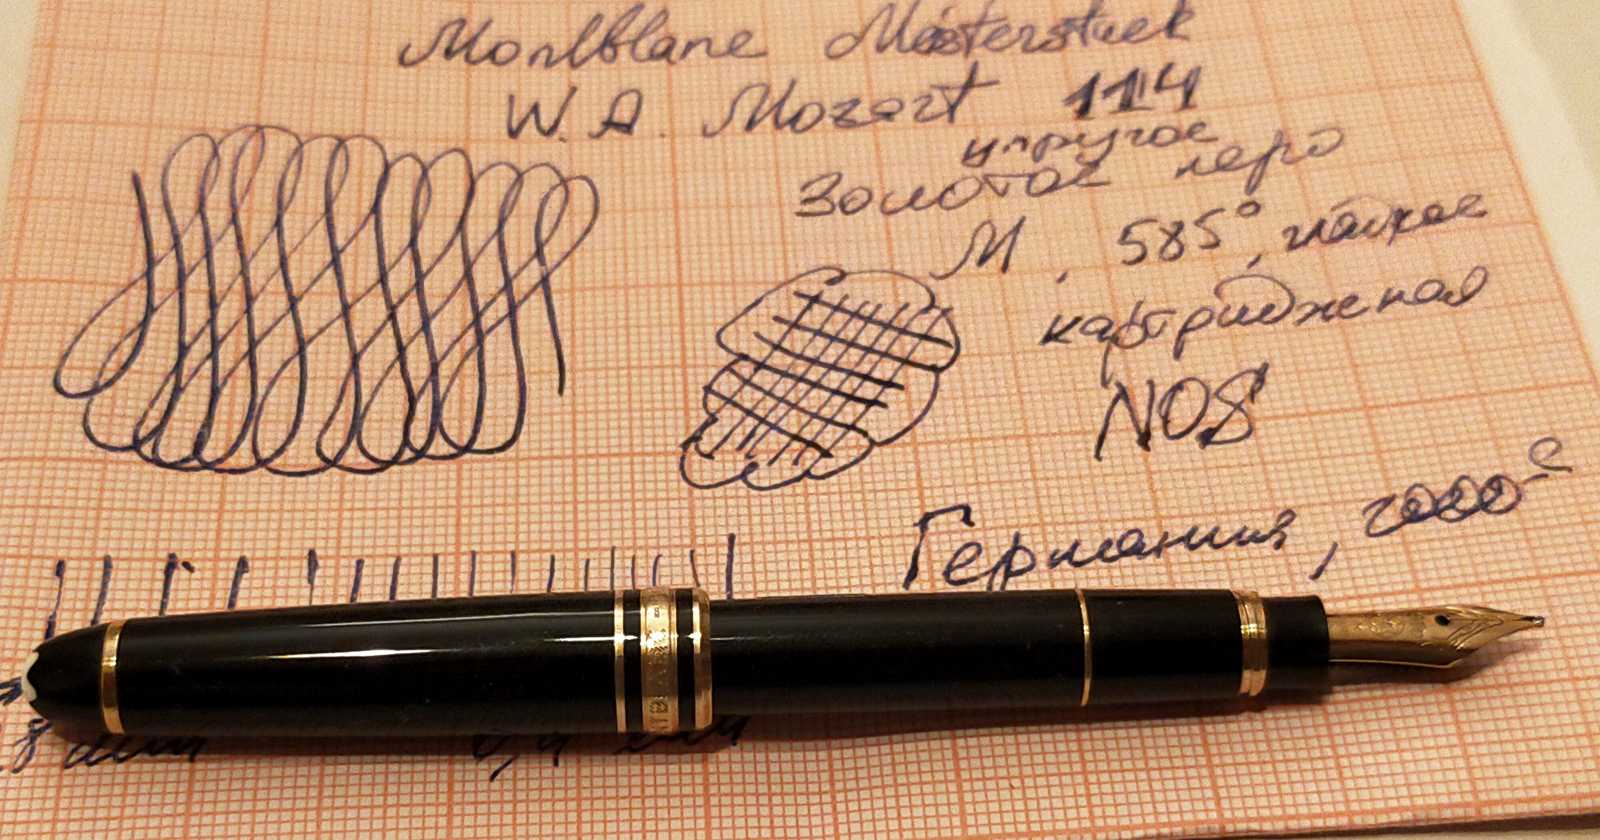 Montblanc Meisterstuck
W.A. Mozart 114
упругое
Золотое перо
M, 585°, гладкое
картриджная
NOS
Германия, 2000-е
8 мм 0,4 мм